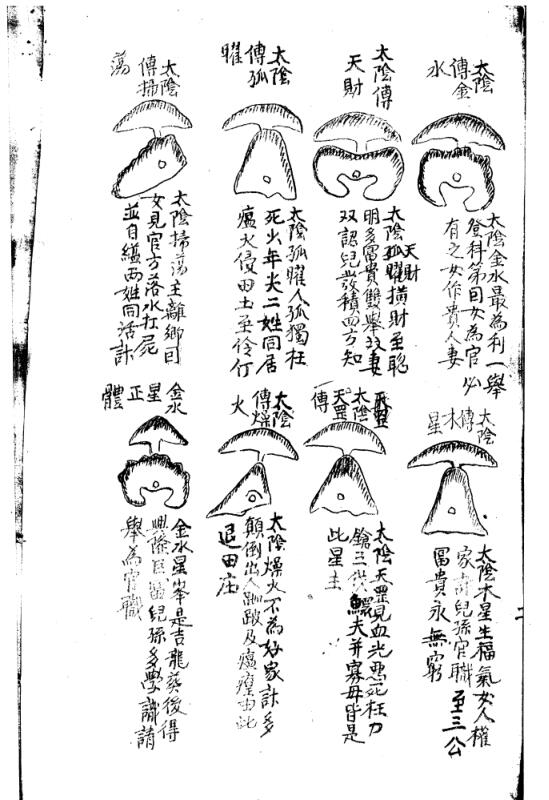 太陰
傳金
水
太陰金水最為利一舉
登科第回女為官必
有之女作貴人妻
太陰傳
天財
天財
太陰孤曜橫財至聪
明多富貴雙舉双妻
双認兒發積四方知
太陰
傳孤
曜
太陰孤曜人孤獨枉
死少年夫二姓同居
瘟火侵田土至伶仃
太陰
傳掃
蕩
太陰掃蕩主離鄉回
女見官方落水扛屍
並自縊兩姓同活計
太陰
傳木
星
太陰木星生福氣女人權
家兒孫官職至三公
富貴永無窮
太陰
天罡
傳
太陰天罡見血光惡死枉刀
鎗三代鰥夫并寡母皆是
此星主
太陰
傳燥
火
太陰燥火不為好家計多
顛倒出人跛及瘟瘴由此
退田庄
金水
星正
體
金水星峯是吉龍葵後得
興隆兒孫多學識請
舉為官職